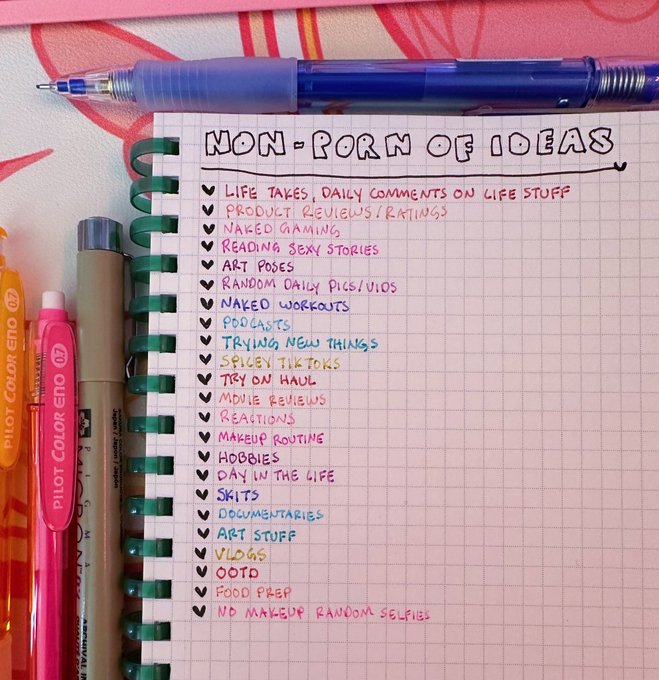 NON-PORN OF IDEAS
LIFE TAKES, DAILY COMMENTS ON LIFE STUFF
PRODUCT REVIEWS/RATINGS
NAKED GAMING
READING SEXY STORIES
ART POSES
RANDOM DAILY PICS/VIDS
NAKED WORKOUTS
PODCASTS
TRYING NEW THINGS
SPICEY TIKTOKS
TRY ON HAUL
MOVIE REVIEWS
REACTIONS
MAKEUP ROUTINE
HOBBIES
DAY IN THE LIFE
SKITS
DOCUMENTARIES
ART STUFF
VLOGS
OOTD
FOOD PREP
NO MAKEUP RANDOM SELFIES
PILOT COLOR ENO 0.7
PILOT COLOR ENO 0.7
PIGMA
MICRON
ARCHIVAL IN